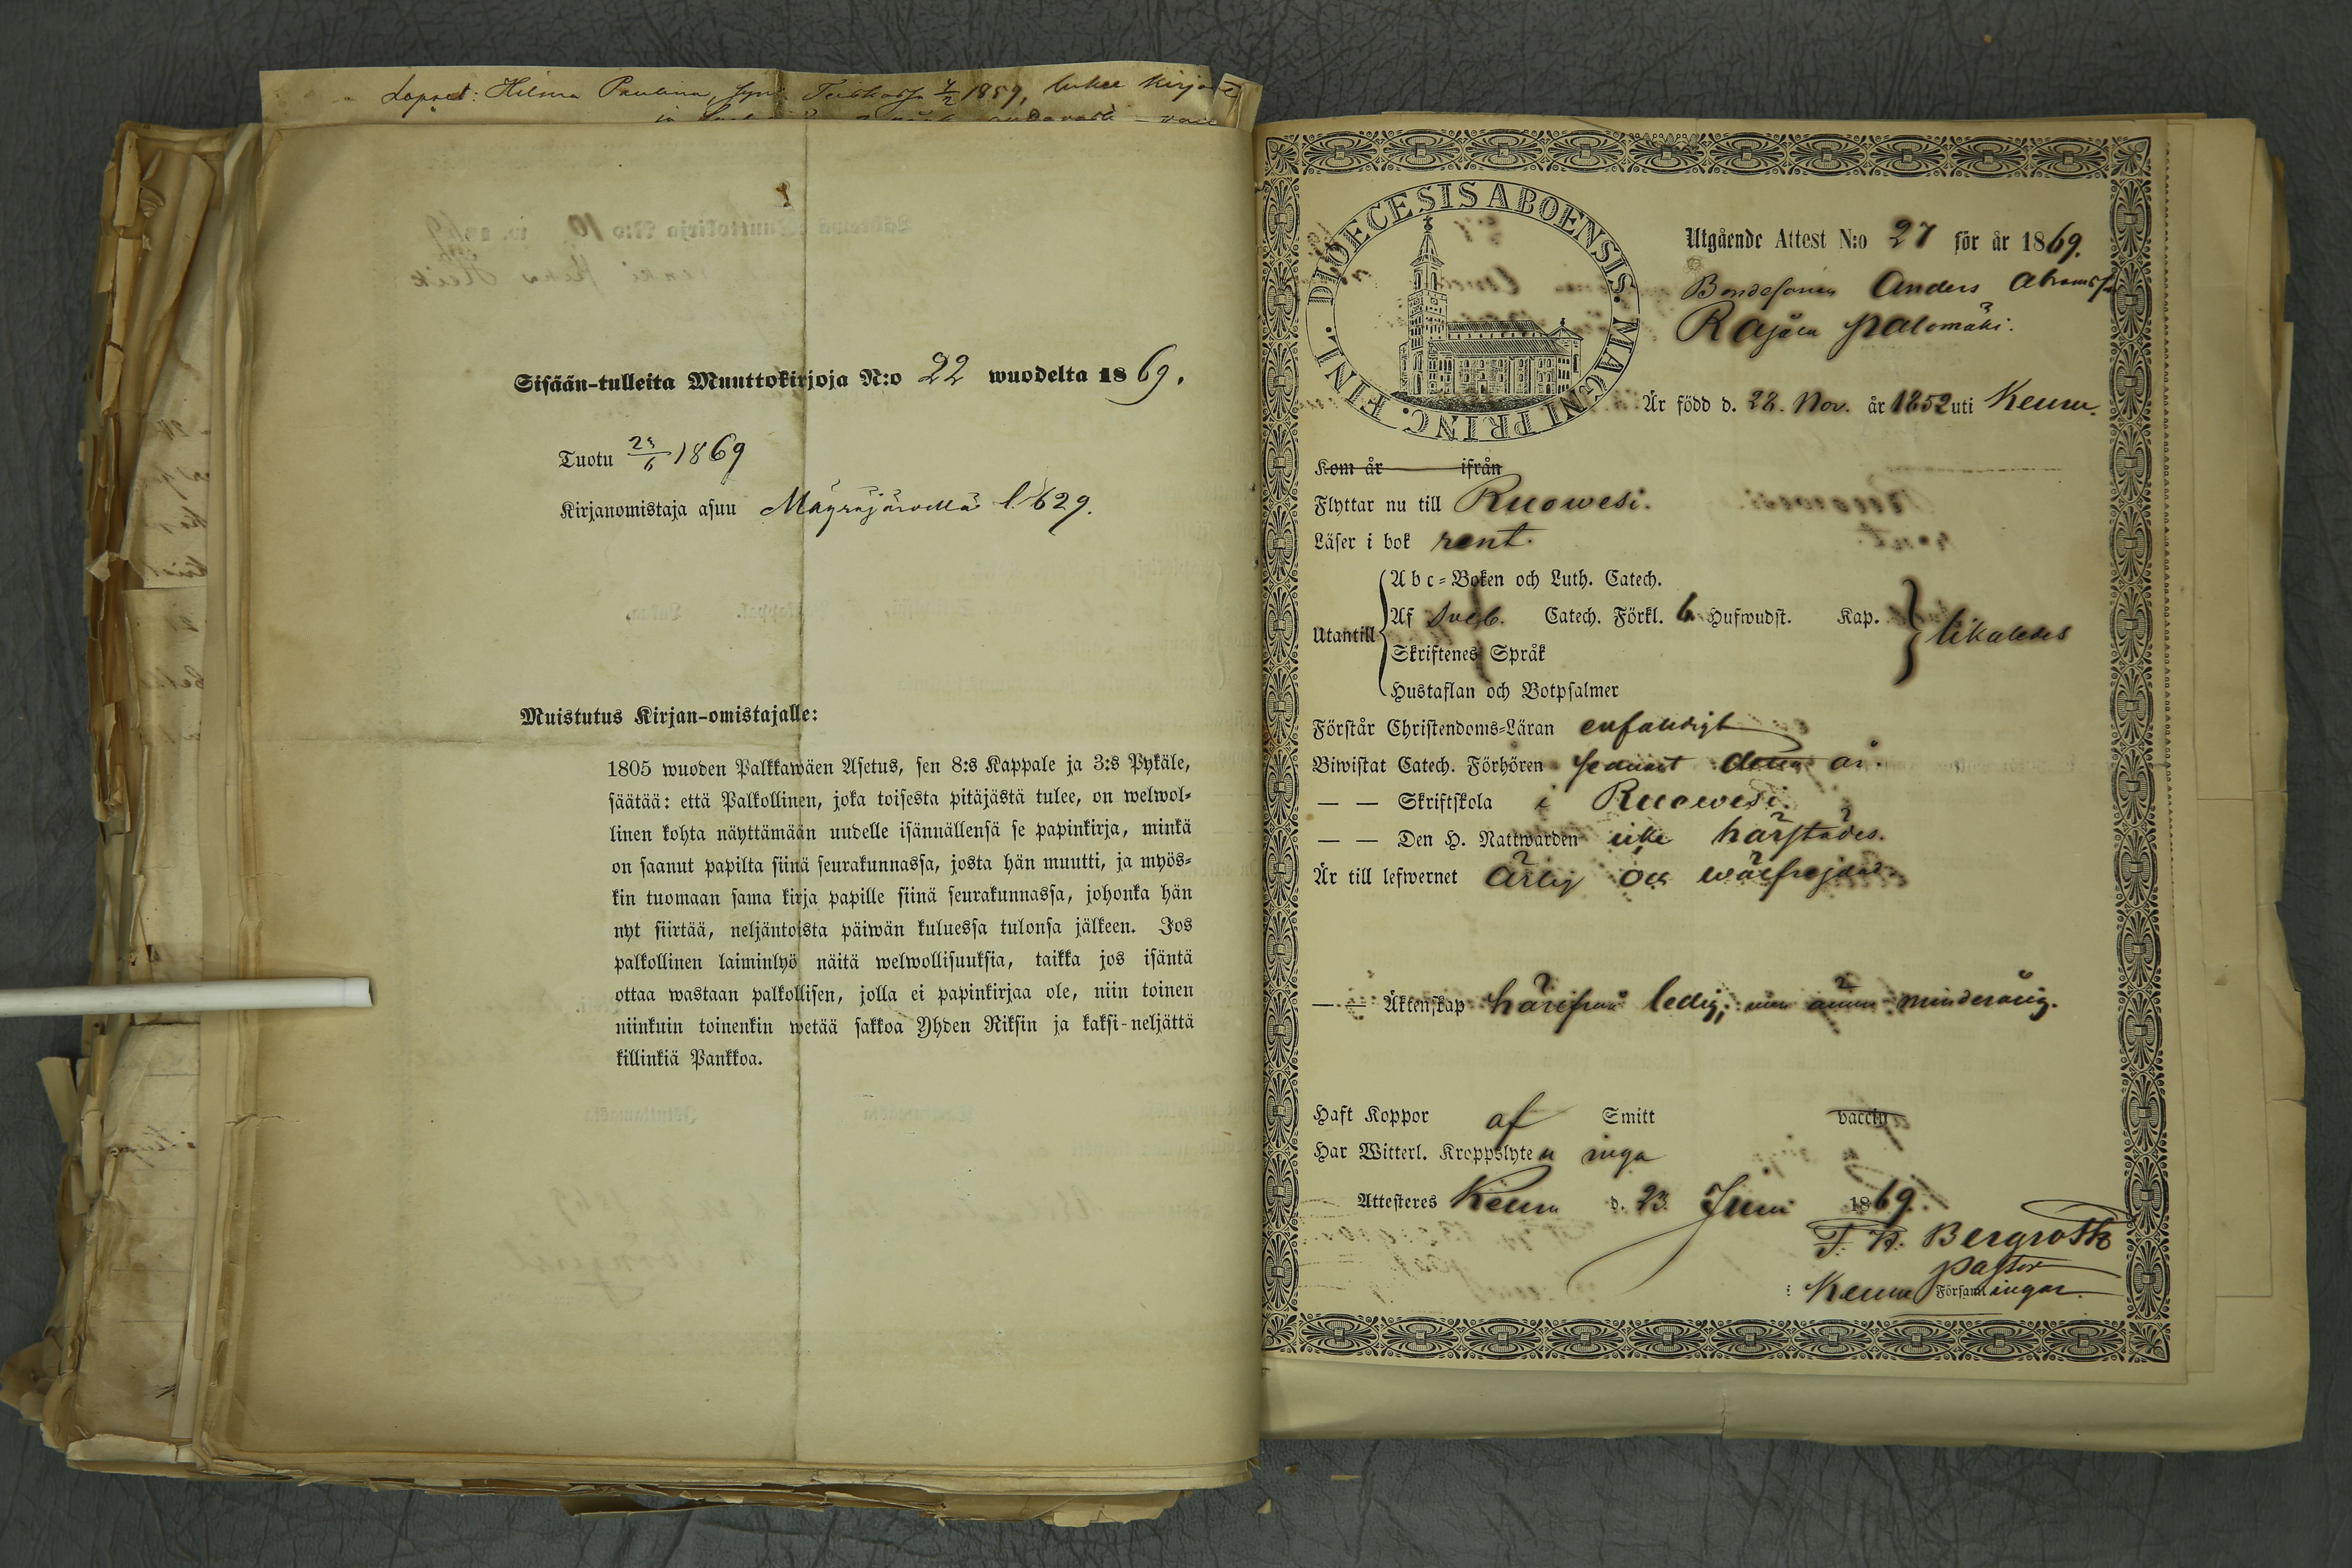 Lapset: Hilma Paulina, synt. Teiskossa 4/2 1859, lukee kirjaa
Sisään-tulleita Muuttokirjoja N:o 22 wuodelta 1869.
Tuotu 1869
Kirjanomistaja asuu Mäyräjärvellä l. 629.
Muistutus Kirjan-omistajalle:
1805 wuoden Palkkawäen Asetus, sen 8:s Kappale ja 3:s Pykäle,
säätää: että Palkollinen, joka toisesta pitäjästä tulee, on welwol-
linen kohta näyttämään uudelle isännällensä se papinkirja, minkä
on saanut papilta siinä seurakunnassa, josta hän muutti, ja myös-
kin tuomaan sama kirja papille siinä seurakunnassa, johonka hän
nyt siirtää, neljäntoista päiwän kuluessa tulonsa jälkeen. Jos
palkollinen laiminlyö näitä welwollisuuksia, taikka jos isäntä
ottaa wastaan palkollisen, jolla ei papinkirjaa ole, niin toinen
niinkuin toinenkin wetää sakkoa Yhden Riksin ja kaksi-neljättä
killinkiä Pankkoa.
DIOECESIS ABOENSIS. MAGNI PRINC. FINL.
Utgående Attest N:o 27 för år 1869.
Bondesonen Anders Abramss.
Rajala Palomäki.
Är född d. 28. Nov. år 1852 uti Keuru.
Kom år ifrån
Flyttar nu till Ruowesi.
Läser i bok rent.
Utantill
Abc-Boken och Luth. Catech.
Af Sveb. Catech. Förkl. 6 Hufwudst. Kap.
Skriftenes Språk
Hustaflan och Botpsalmer
likaledes
Förstår Christendoms-Läran enfaldigt
Biwistat Catech. Förhören sednast detta år.
— — Skriftskola i Ruowesi.
— — Den H. Nattwarden icke härstädes.
Är till lefwernet ärlig och wälfrejdad.
— — Äktenskap härifrån ledig, men ännu minderårig.
Haft Koppor af Smitt vaccin
Har Witterl. Kroppslyten inga
Attesteres Keuru d. 23. Juni 1869.
Bergroth
Pastor
Keuru Församlingar.